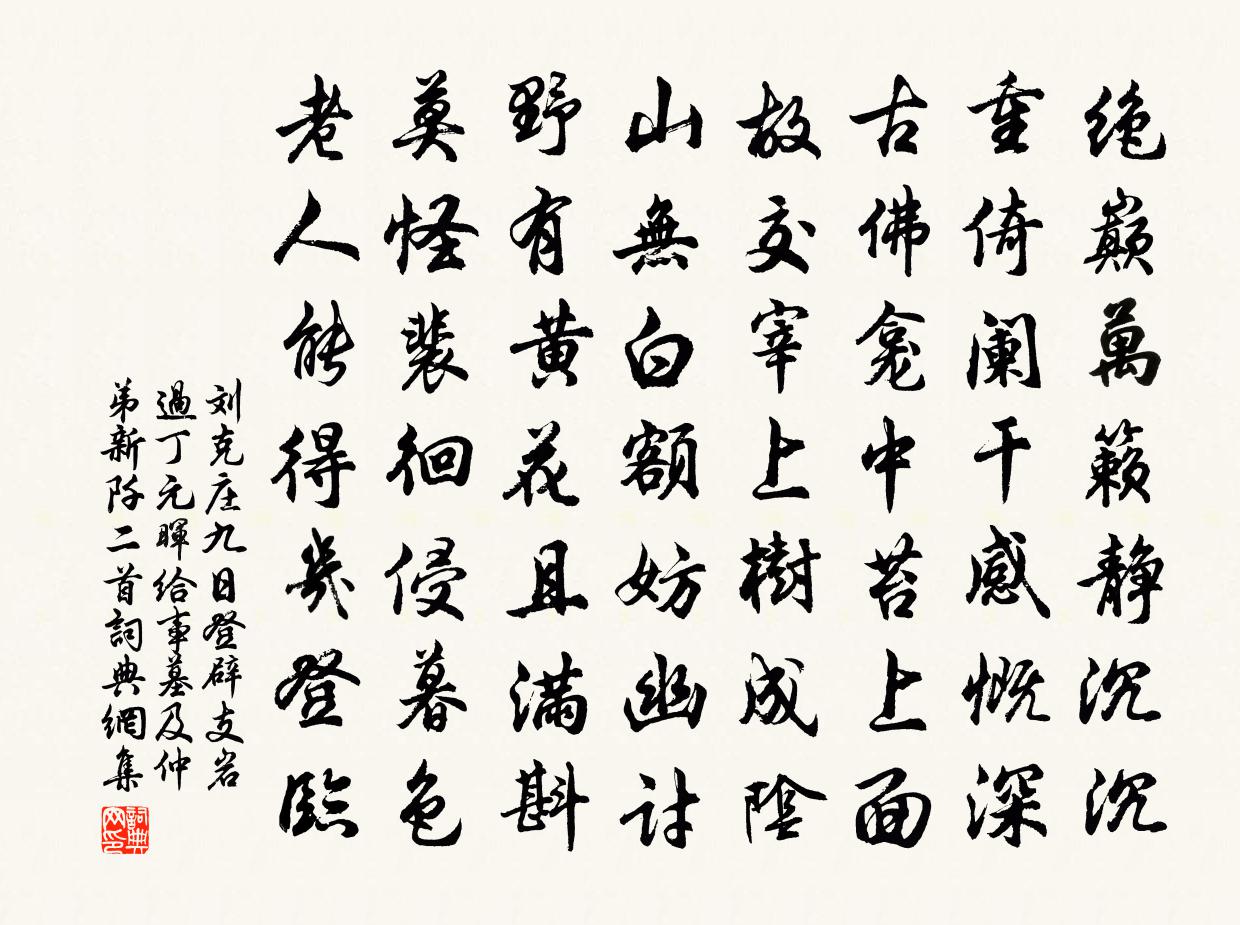 绝巅萬籁静沉沉
重倚阑干感慨深
古佛龛中苔上面
故交宰上樹成陰
山無白額妨幽討
野有黄花且满斟
莫怪裴徊侵暮色
老人能得幾登臨
刘克庄九日登辟支岩
過丁元暉给事墓及仲
弟新阡二首詞典網集
詞典網印